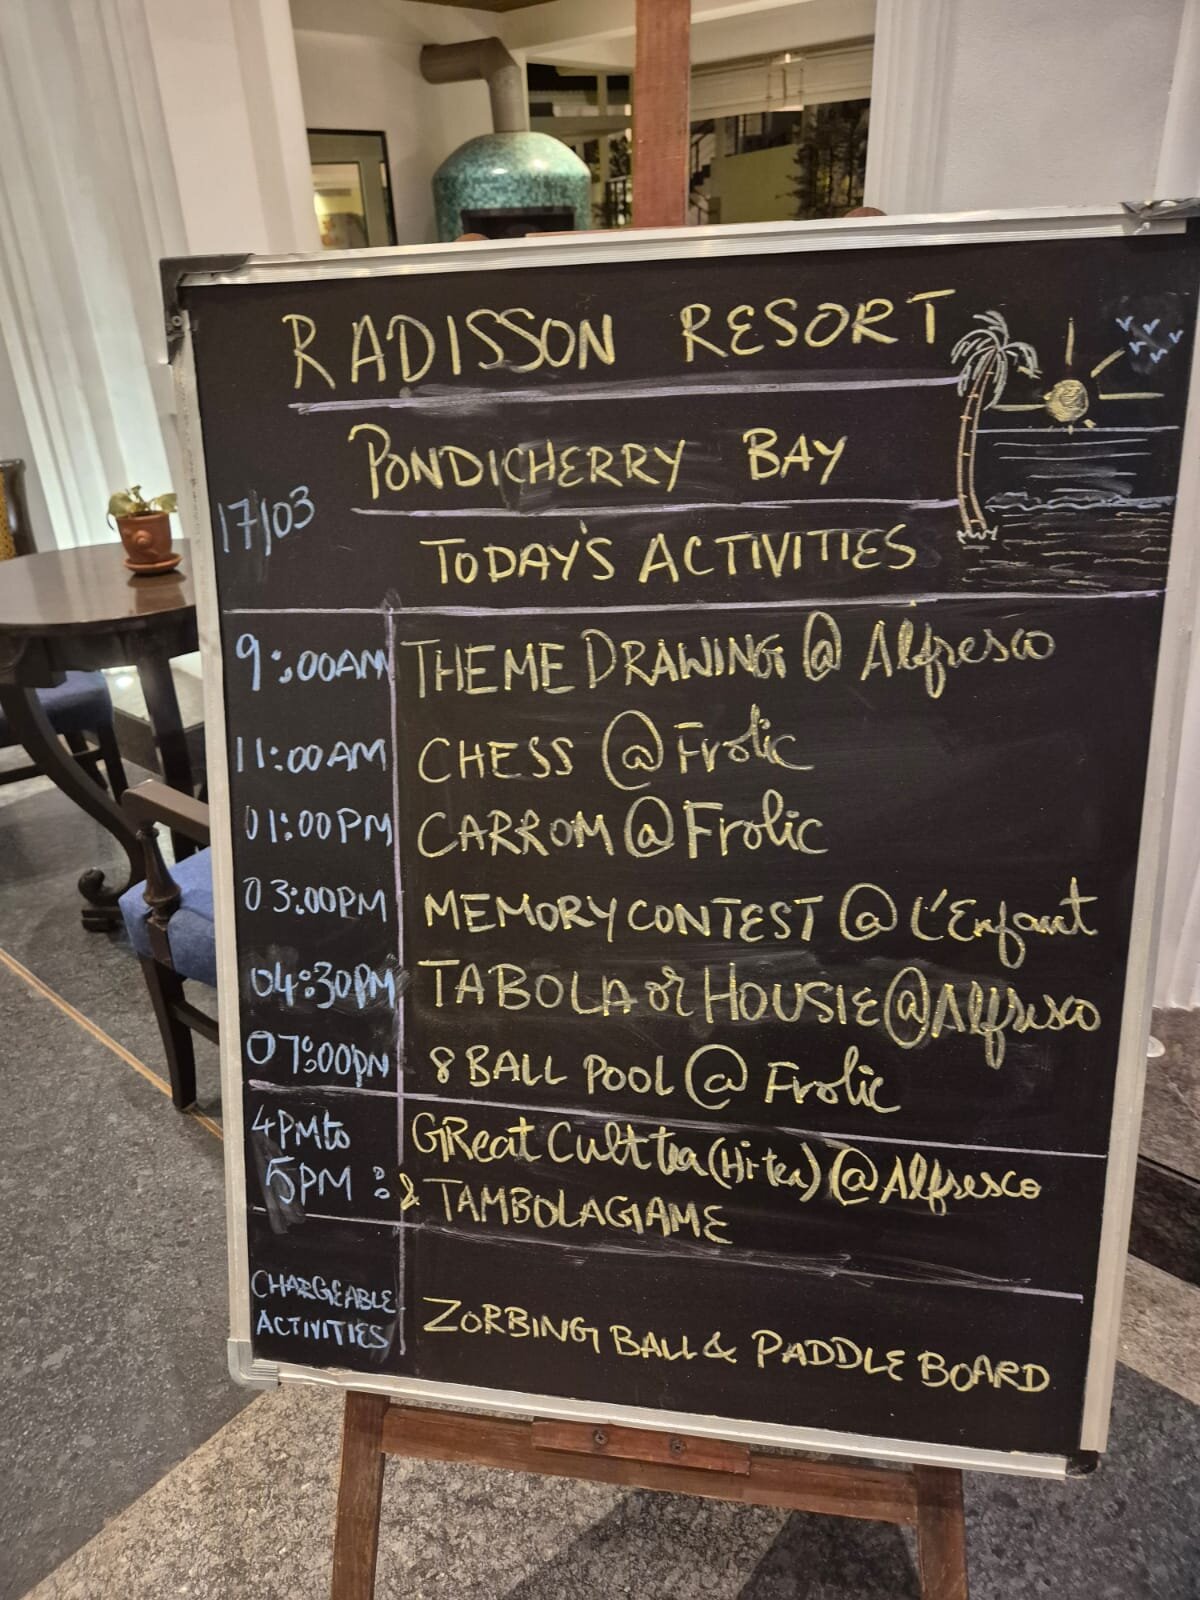 RADISSON RESORT
PONDICHERRY BAY
17/03
TODAY'S ACTIVITIES
9:00AM THEME DRAWING @ Alfresco
11:00AM CHESS @ Frolic
01:00PM CARROM @ Frolic
03:00PM MEMORY CONTEST @ L'Enfant
04:30PM TABOLA or HOUSIE @ Alfresco
07:00PM 8 BALL POOL @ Frolic
4PM to GREat Cult tea (Hi-tea) @ Alfresco
5PM : & TAMBOLA GAME
CHARGEABLE
ACTIVITIES ZORBING BALL & PADDLE BOARD